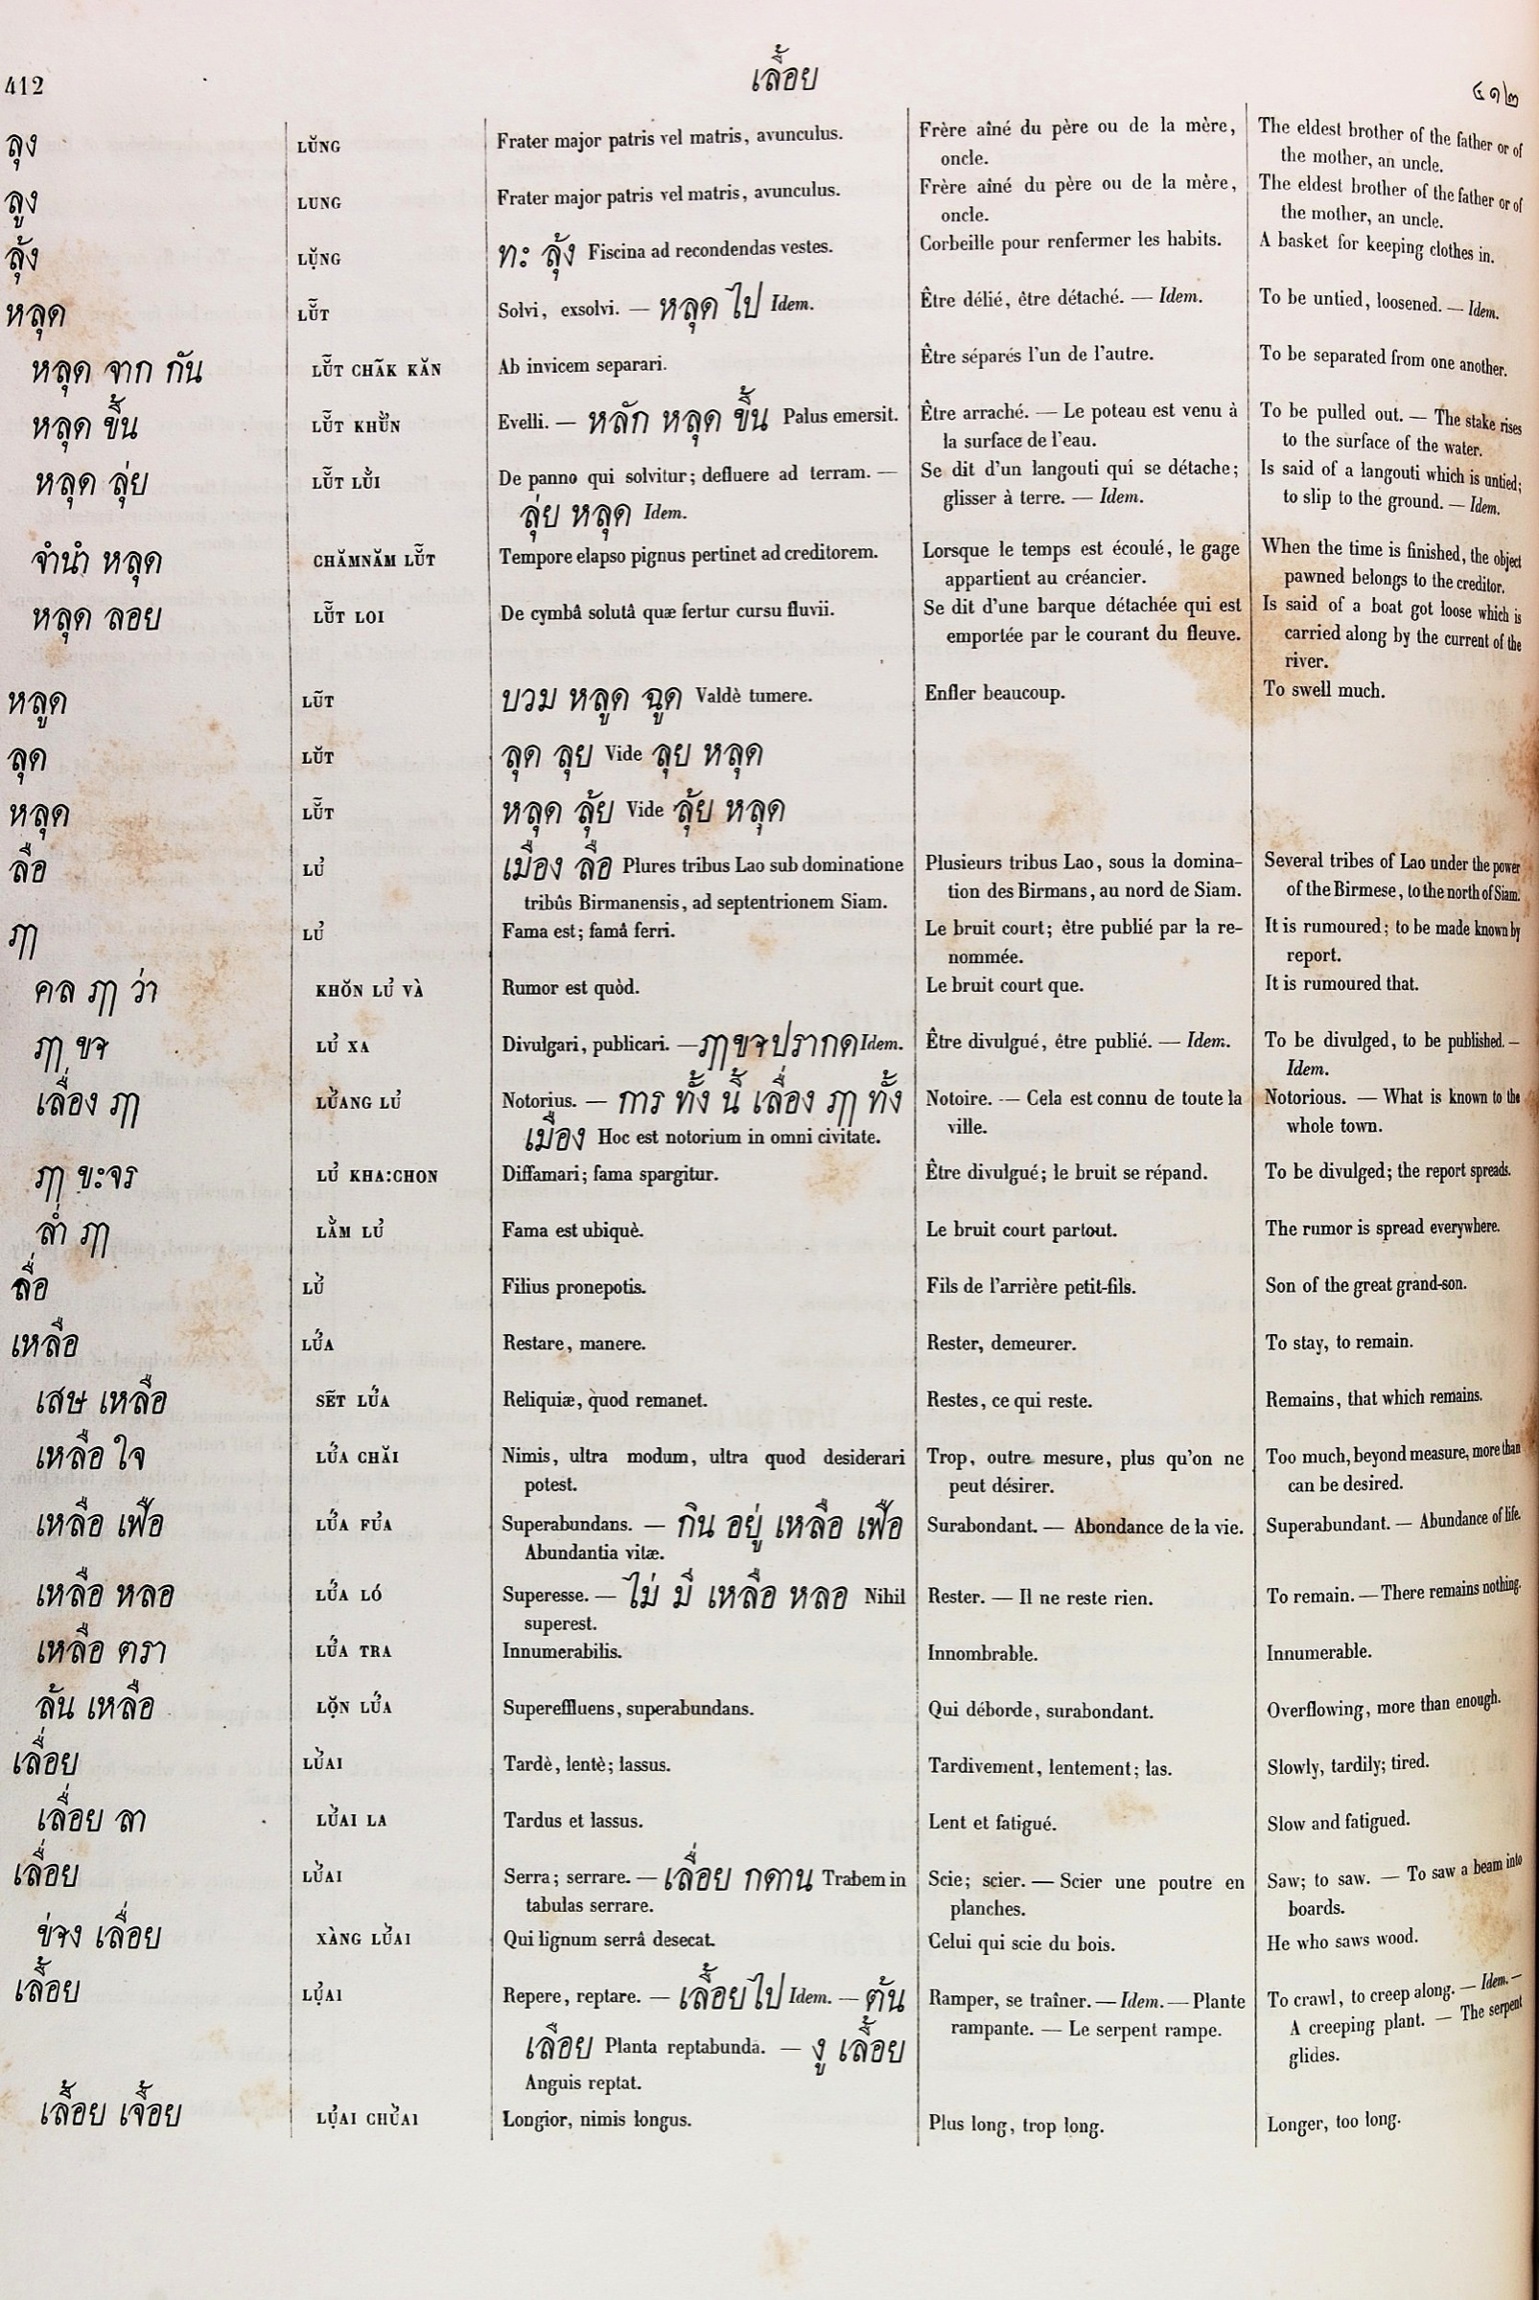 412 เลื้อย ๔๑๒
ลุง LŬNG Frater major patris vel matris, avunculus. Frère aîné du père ou de la mère, The eldest brother of the father or of
oncle. the mother, an uncle.
ลูง LUNG Frater major patris vel matris, avunculus. Frère aîné du père ou de la mère, The eldest brother of the father or of
oncle. the mother, an uncle.
ลุ้ง LỤ̆NG ทะ ลุ้ง Fiscina ad recondendas vestes. Corbeille pour renfermer les habits. A basket for keeping clothes in.
หลุด LŬ̃T Solvi, exsolvi. — หลุด ไป Idem. Être délié, être détaché. — Idem. To be untied, loosened. — Idem.
หลุด จาก กัน LŬ̃T CHÃK KĂN Ab invicem separari. Être séparés l'un de l'autre. To be separated from one another.
หลุด ขึ้น LŬ̃T KHŬ̉N Evelli. — หลัก หลุด ขึ้น Palus emersit. Être arraché. — Le poteau est venu à To be pulled out. — The stake rises
la surface de l'eau. to the surface of the water.
หลุด ลุ่ย LŬ̃T LŬ̀I De panno qui solvitur; defluere ad terram. — Se dit d'un langouti qui se détache; Is said of a langouti which is untied;
ลุ่ย หลุด Idem. glisser à terre. — Idem. to slip to the ground. — Idem.
จำนำ หลุด CHĂMNĂM LŬ̃T Tempore elapso pignus pertinet ad creditorem. Lorsque le temps est écoulé, le gage When the time is finished, the object
appartient au créancier. pawned belongs to the creditor.
หลุด ลอย LŬ̃T LOI De cymbâ solutâ quæ fertur cursu fluvii. Se dit d'une barque détachée qui est Is said of a boat got loose which is
emportée par le courant du fleuve. carried along by the current of the
river.
หลูด LŨT บวม หลูด ฉูด Valdè tumere. Enfler beaucoup. To swell much.
ลุด LŬT ลุด ลุย Vide ลุย หลุด
หลุด LŬ̃T หลุด ลุ้ย Vide ลุ้ย หลุด
ลือ LU̓ เมือง ลือ Plures tribus Lao sub dominatione Plusieurs tribus Lao, sous la domina- Several tribes of Lao under the power
tribûs Birmanensis, ad septentrionem Siam. tion des Birmans, au nord de Siam. of the Birmese, to the north of Siam.
ฦๅ LU̓ Fama est; famâ ferri. Le bruit court; être publié par la re- It is rumoured; to be made known by
nommée. report.
คล ฦๅ ว่า KHŎN LU̓ VÀ Rumor est quòd. Le bruit court que. It is rumoured that.
ฦๅ ขจ LU̓ XA Divulgari, publicari. — ฦๅขจปรากด Idem. Être divulgué, être publié. — Idem. To be divulged, to be published. —
Idem.
เลื่อง ฦๅ LU̓̀ANG LU̓ Notorius. — การ ทั้ง นี้ เลื่อง ฦๅ ทั้ง Notoire. — Cela est connu de toute la Notorious. — What is known to the
เมือง Hoc est notorium in omni civitate. ville. whole town.
ฦๅ ขะจร LU̓ KHA:CHON Diffamari; fama spargitur. Être divulgué; le bruit se répand. To be divulged; the report spreads.
ล่ำ ฦๅ LẰM LU̓ Fama est ubiquè. Le bruit court partout. The rumor is spread everywhere.
ลื่อ LU̓̀ Filius pronepotis. Fils de l'arrière petit-fils. Son of the great grand-son.
เหลือ LU̓́A Restare, manere. Rester, demeurer. To stay, to remain.
เสษ เหลือ SẼT LU̓́A Reliquiæ, quod remanet. Restes, ce qui reste. Remains, that which remains.
เหลือ ใจ LU̓́A CHĂI Nimis, ultra modum, ultra quod desiderari Trop, outre mesure, plus qu'on ne Too much, beyond measure, more than
potest. peut désirer. can be desired.
เหลือ เฟือ LU̓́A FU̓A Superabundans. — กิน อยู่ เหลือ เฟือ Surabondant. — Abondance de la vie. Superabundant. — Abundance of life.
Abundantia vitæ.
เหลือ หลอ LU̓́A LÓ Superesse. — ไม่ มี เหลือ หลอ Nihil Rester. — Il ne reste rien. To remain. — There remains nothing.
superest.
เหลือ ตรา LU̓́A TRA Innumerabilis. Innombrable. Innumerable.
ล้น เหลือ LỘN LU̓́A Supereffluens, superabundans. Qui déborde, surabondant. Overflowing, more than enough.
เลื่อย LU̓̀AI Tardè, lentè; lassus. Tardivement, lentement; las. Slowly, tardily; tired.
เลื่อย ลา LU̓̀AI LA Tardus et lassus. Lent et fatigué. Slow and fatigued.
เลื่อย LU̓̀AI Serra; serrare. — เลื่อย กดาน Trabem in Scie; scier. — Scier une poutre en Saw; to saw. — To saw a beam into
tabulas serrare. planches. boards.
ข่จง เลื่อย XÀNG LU̓̀AI Qui lignum serrâ desecat. Celui qui scie du bois. He who saws wood.
เลื้อย LỤ̓AI Repere, reptare. — เลื้อยไป Idem. — ต้น Ramper, se traîner. — Idem. — Plante To crawl, to creep along. — Idem. —
เลือย Planta reptabunda. — งู เลื้อย rampante. — Le serpent rampe. A creeping plant. — The serpent
Anguis reptat. glides.
เลื้อย เจื้อย LỤ̓AI CHU̓̀AI Longior, nimis longus. Plus long, trop long. Longer, too long.